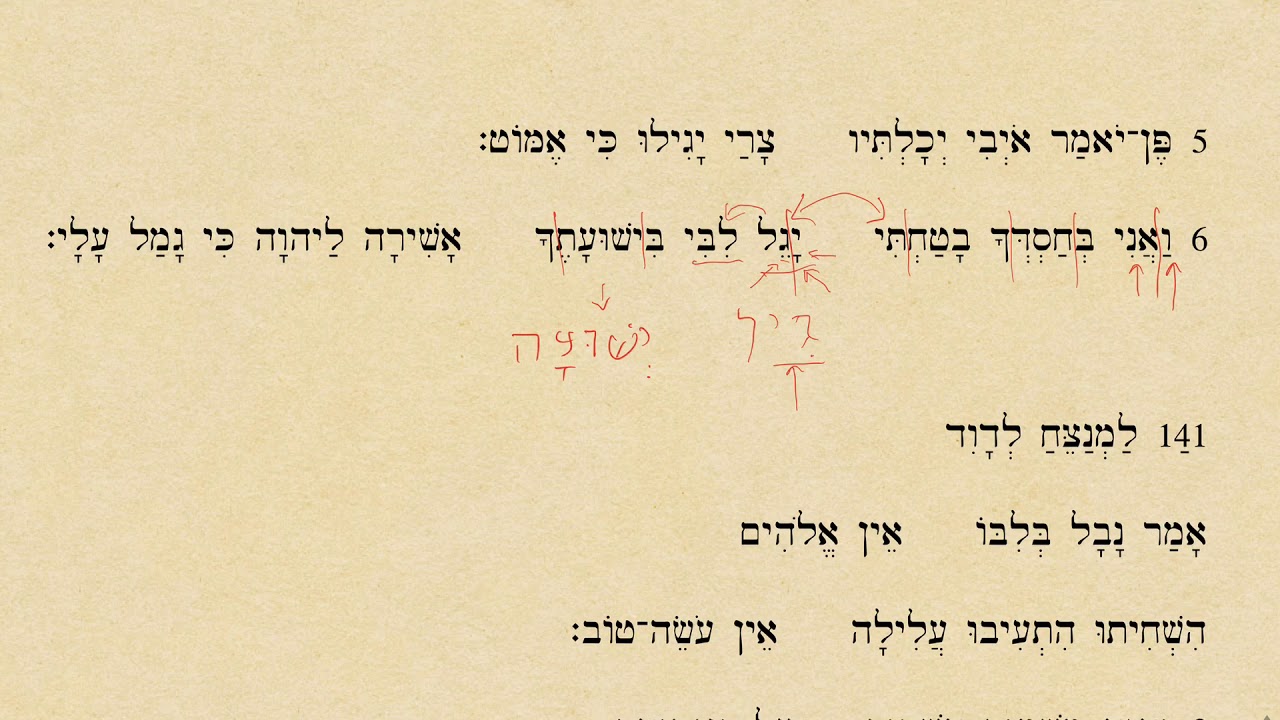 5 פֶּן־יֹאמַר אֹיְבִי יְכָלְתִּיו צָרַי יָגִילוּ כִּי אֶמּוֹט׃
6 וַאֲנִי בְּחַסְדְּךָ בָטַחְתִּי יָגֵל לִבִּי בִּישׁוּעָתֶךָ אָשִׁירָה לַיהוָה כִּי גָמַל עָלָי׃
גִיל יְשׁוּעָה
14 1 לַמְנַצֵּחַ לְדָוִד
אָמַר נָבָל בְּלִבּוֹ אֵין אֱלֹהִים
הִשְׁחִיתוּ הִתְעִיבוּ עֲלִילָה אֵין עֹשֵׂה־טוֹב׃